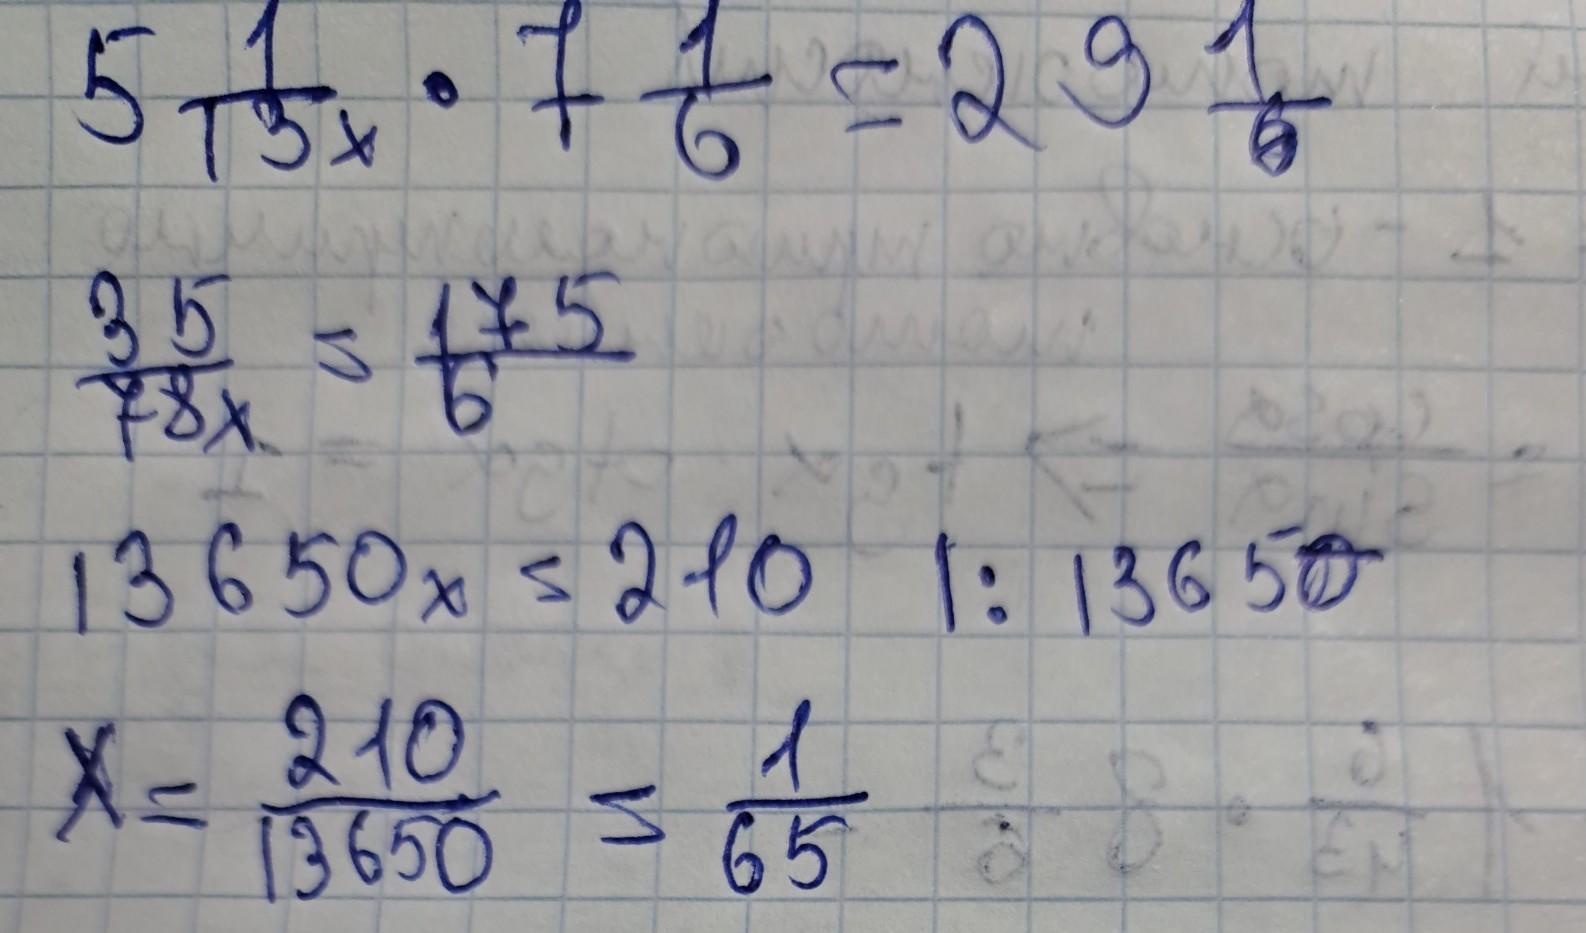 5 1/13x · 7 1/6 = 29 1/6
35/78x = 175/6
13650x = 210 |: 13650
x = 210/13650 = 1/65